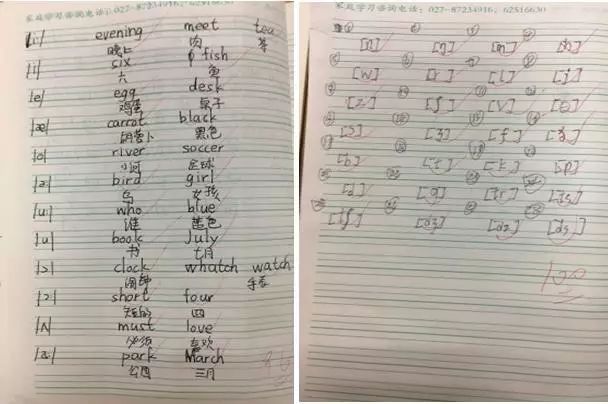 家庭学习咨询电话:027-87234916, 62516630
|i:| evening meet tea
晚上 肉 茶
|i| six fish
六 鱼
|e| egg desk
鸡蛋 桌子
|æ| carrot black
胡萝卜 黑色
|ə| river soccer
小河 足球
bird girl
鸟 女孩
|u:| who blue
谁 蓝色
|u| book July
书 七月
clock whatch watch
闹钟 手表
short four
短的 四
|ʌ| must love
必须 喜欢
|a:| park March
公园 三月
家庭学习咨询电话:027-87234916, 62516630
[n] [ŋ] [m] [h]
[w] [r] [l] [j]
[z] [ʃ] [v] [θ]
[s] [ʒ] [f]
[b] [t] [k] [p]
[d] [g] [tr] [ts]
[tʃ] [dʒ] [dz]
100